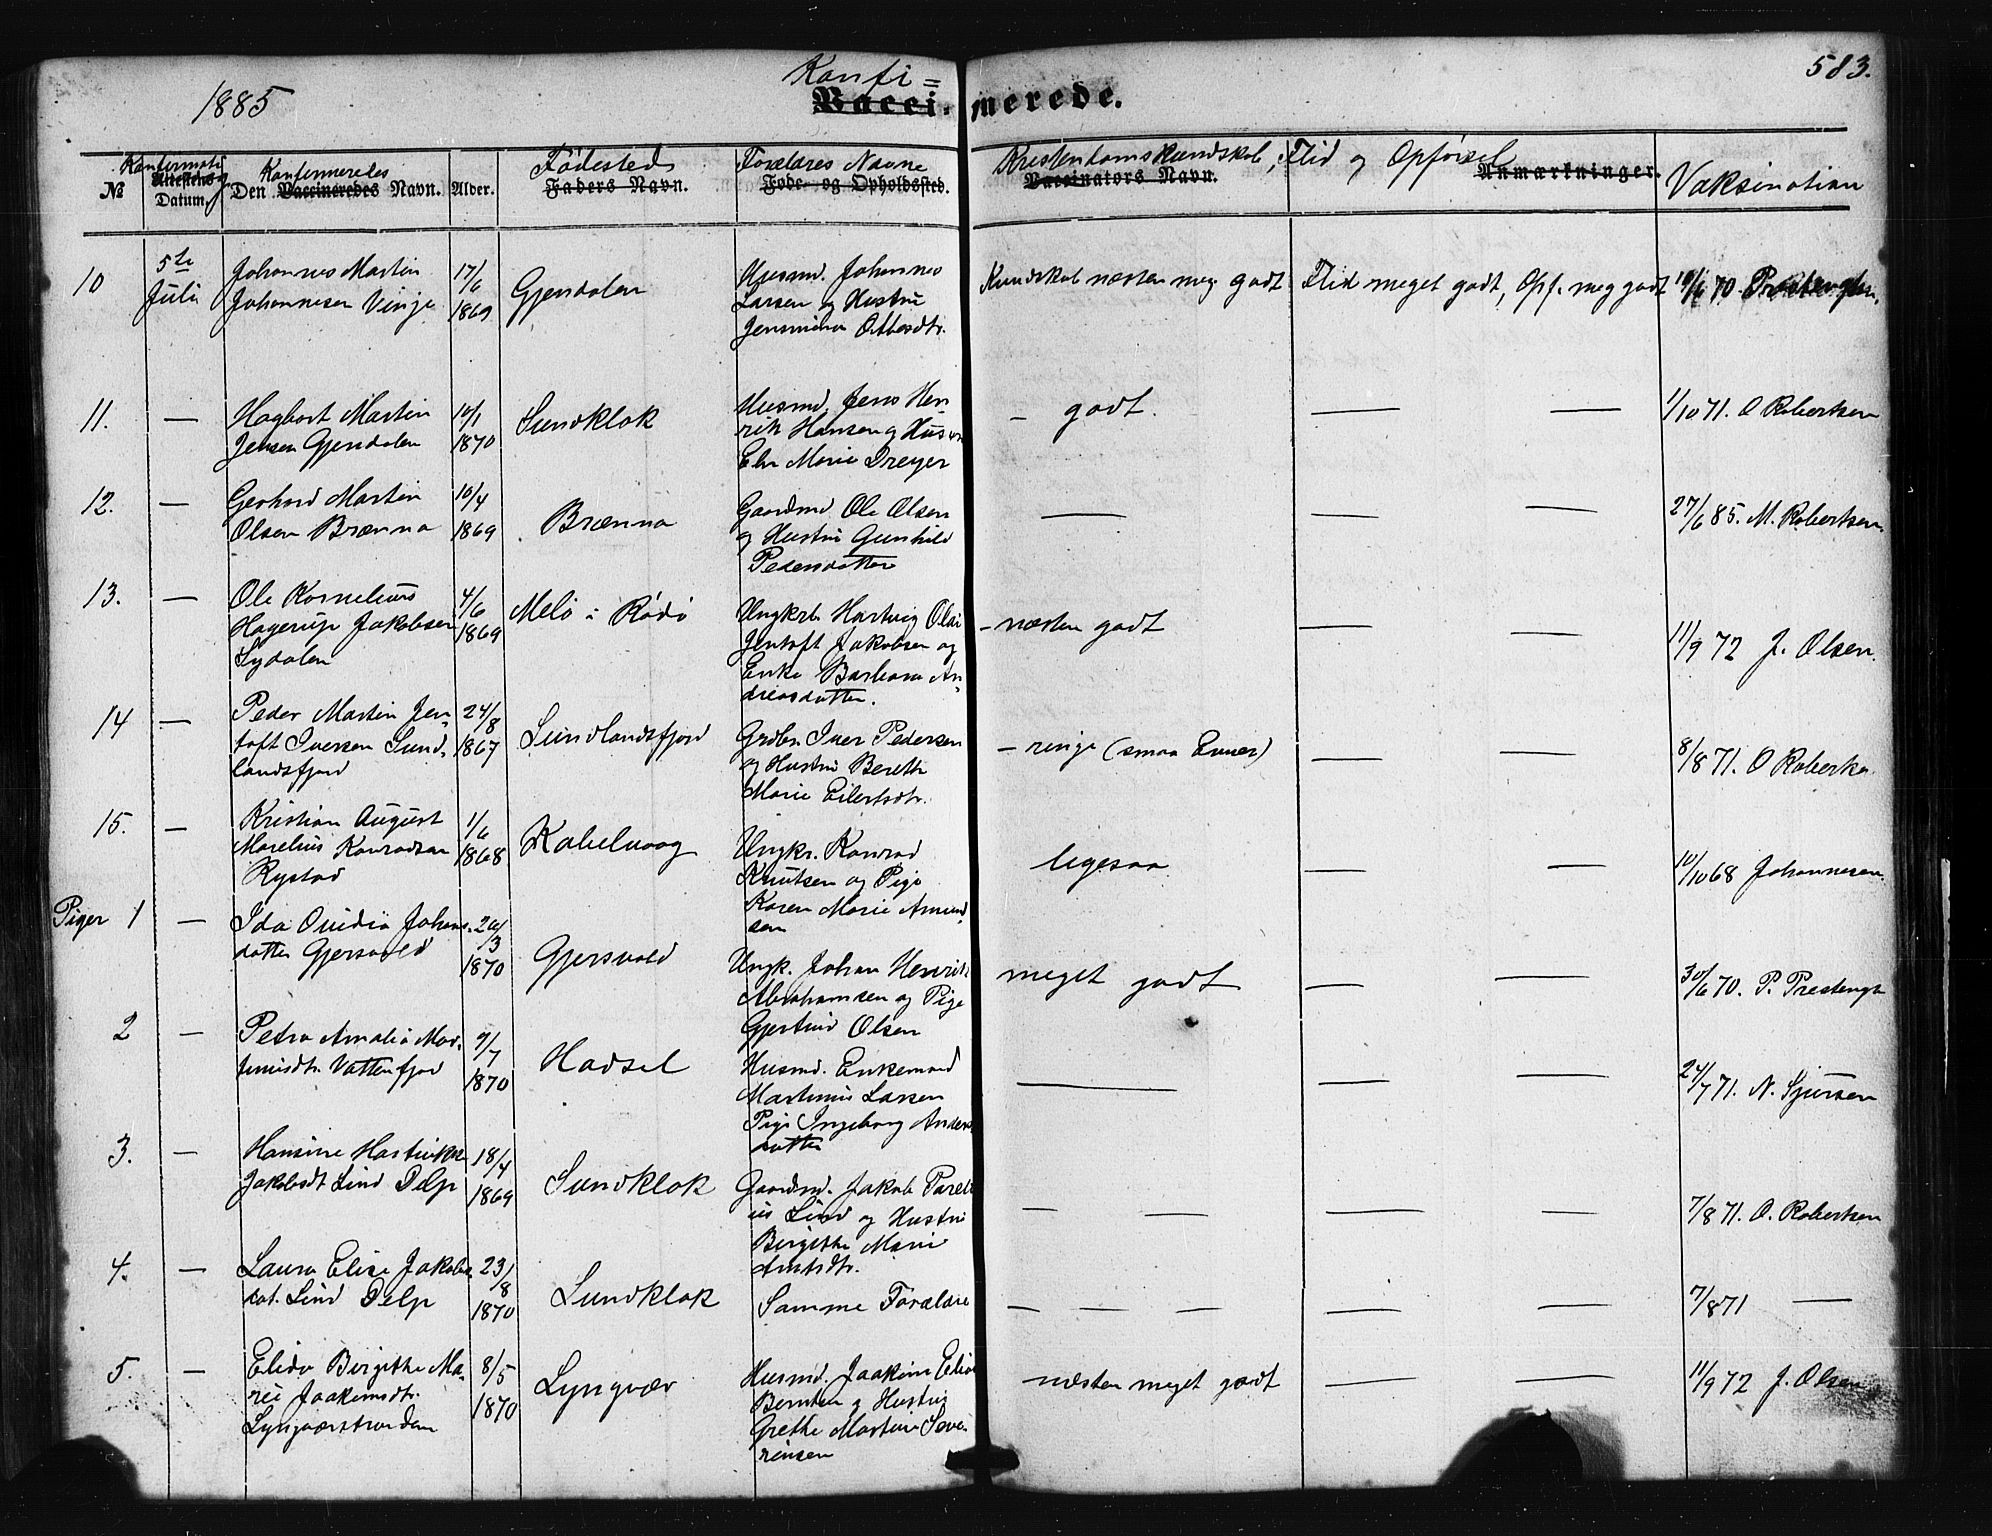 583.
1885
Konfi=
Vacci.nerede.
Konfirmati
Attestens
Datum.
№
Konfirmeredes
Den Vaccineredes Navn.
Alder.
Fødested
Faders Navn.
Forældres Navne
Føde- og Opholdssted.
Kristendomskundskab, Flid og Opførsel
Vaccinators Navn.
Anmærkninger.
Vaksination
10
5te
Juli
Johannes Martin
Johannesen Vinje
17/6
1869
Gjendalen
Husmd. Johannes
Larsen og Hustru
Jensmina Ottesdtr.
Kundskab næsten meg. godt
Flid meget godt, Opf. meg godt
19/6 70.
11.
—
Hagbart Martin
Jensen Gjendalen
10/1
1870
Sundklak
Husmd. Jens Hen
rik Hansen og Hustru
Eln Marie Dreyer
- godt.
—
—
1/10 71. O Robertsen
12.
—
Gerhard Martin
Olsen Brænna
10/4
1869
Brænna
Gaardmd Ole Olsen
og Hustru Gunhild
Pedersdatter
—
—
—
27/6 85. M. Robertsen.
13.
—
Ole Kornelius
Hagerup Jakobsen
Lydalen
4/6
1869
Melø i Rødø
Ungkrl. Hartvig Olai
Jentoft Jakobsen og
Enke Barbara An
dreasdatter.
- næsten godt
—
—
11/9 72 J. Olsen.
14
—
Peder Martin Jen
toft Iversen Sund
landsfjord
24/8
1867
Sundlandsfjord
Grdbr. Iver Pedersen
og Hustru Berethe
Marie Eilertsdtr.
- ringe (smaa Evner)
—
—
8/8 71. O Roberts
15.
—
Kristian August
Marelius Konradsen
Rystad
1/6
1868
Kabelvaag
Ungkr. Konrad
Knutsen og Pige
Karen Marie Amund
sen
ligesaa
—
—
10/10 68 Johannesen.
Piger 1
—
Ida Ovidia Johans
datter Gjersvold
24/3
1870
Gjersvold
Ungk. Johan Henrik
Abrahamsen og Pige
Gjertrud Olsen
meget godt
—
—
30/6 70. P. Prestengb
2
—
Petra Amalia Mar
tinusdtr. Vattenfjord
9/7
1870
Hadsel
Husmd. Enkemand
Martinus Larsen
Pige Ingeborg Anders
datter
—
—
—
24/7 71. N. Sjursen
3.
—
Hansine Hartvikke
Jakobsdt Lind Delp
18/4
1869
Sundklak
Gaardmd. Jakob Pareli
us Lind og Hustru
Birgithe Marie
Arntsdtr.
— —
—
—
7/8 71. O. Robertsen
4.
—
Laura Elise Jakobs
dat. Lind Delp
23/8
1870
Sundklak
Samme Forældre
— — —
—
—
7/8 71 —
5.
—
Elida Birgithe Ma
rie Joakimsdtr.
Lyngværstranden
8/5
1870
Lyngvær
Husmd. Joakim Elias
Berntsen og Hustru
Grethe Martine Seve
rinsen
næsten meget godt
—
—
11/9 72 J. Olsen